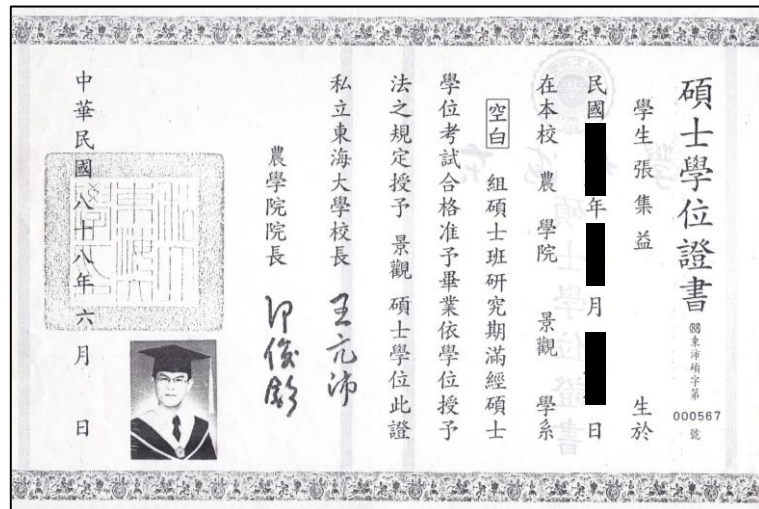 碩士學位證書
88東沛碩字第
000567
號
學生張集益 生於
民國 年 月 日
在本校 農 學院 景觀 學系
空白 組碩士班研究期滿經碩士
學位考試合格准予畢業依學位授予
法之規定授予 景觀 碩士學位此證
私立東海大學校長 王亢沛
農學院院長
中華民國八十八年六月 日